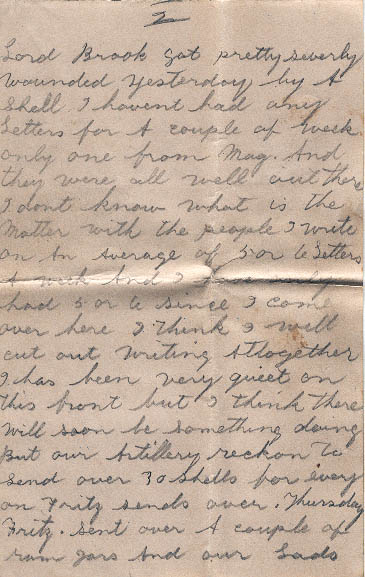 2
Lord Brook got pretty severly
wounded yesterday by A
Shell. I havent had any
Letters for A couple of week
only one from Mag. And
they were all well out there
I dont know what is the
Matter with the people I write
on An Average of 5 or 6 Letters
A week And I only
had 5 or 6 since I come
over here I think I will
cut out writing Alltogether
I has been very quiet on
this front but I think there
will soon be something doing
But our Artillery reckon to
send over 30 shells for every
on Fritz sends over. Thursday
Fritz. sent over A couple of
rum jars And our Lads